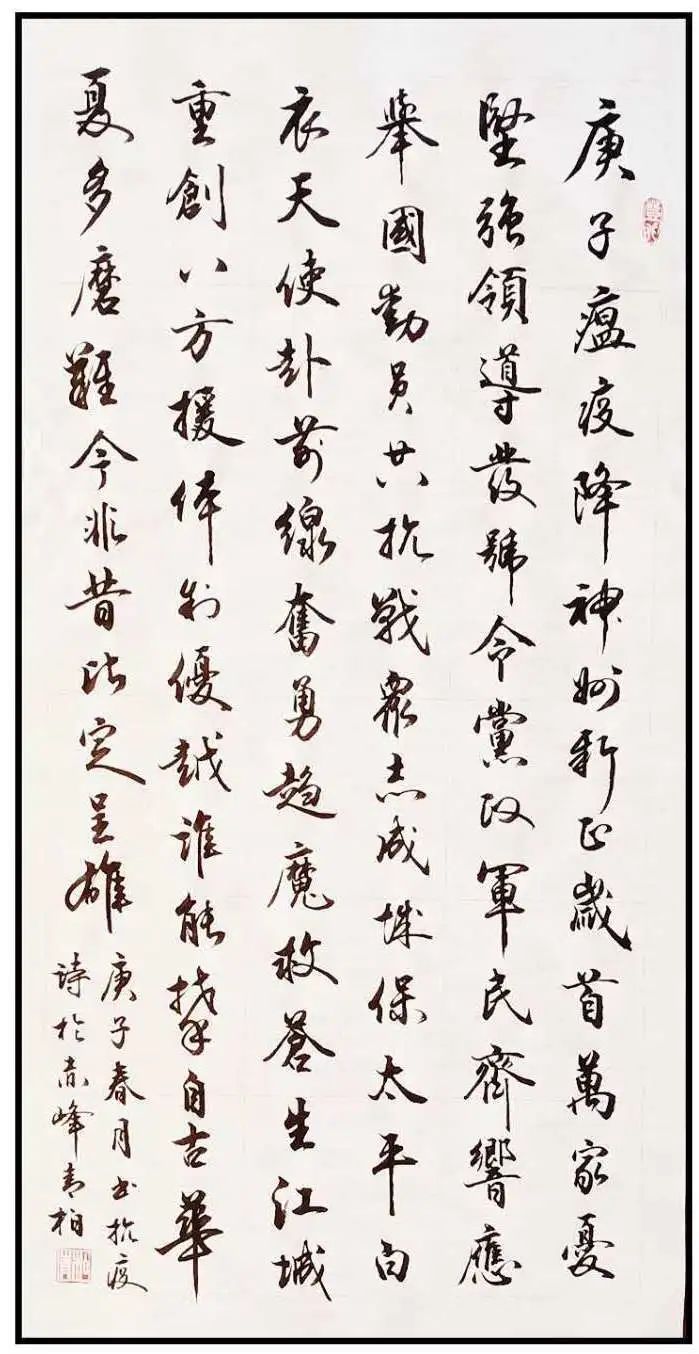 庚子瘟疫降神州新正歲首萬家憂
堅強領導發號令黨政軍民齊響應
舉國動員共抗戰衆志成城保太平白
衣天使赴前線奮勇趨魔救蒼生江城
重創八方援体制優越誰能自古華
夏多磨難今非昔比定呈雄
庚子春月书抗疫
詩於赤峰青柏